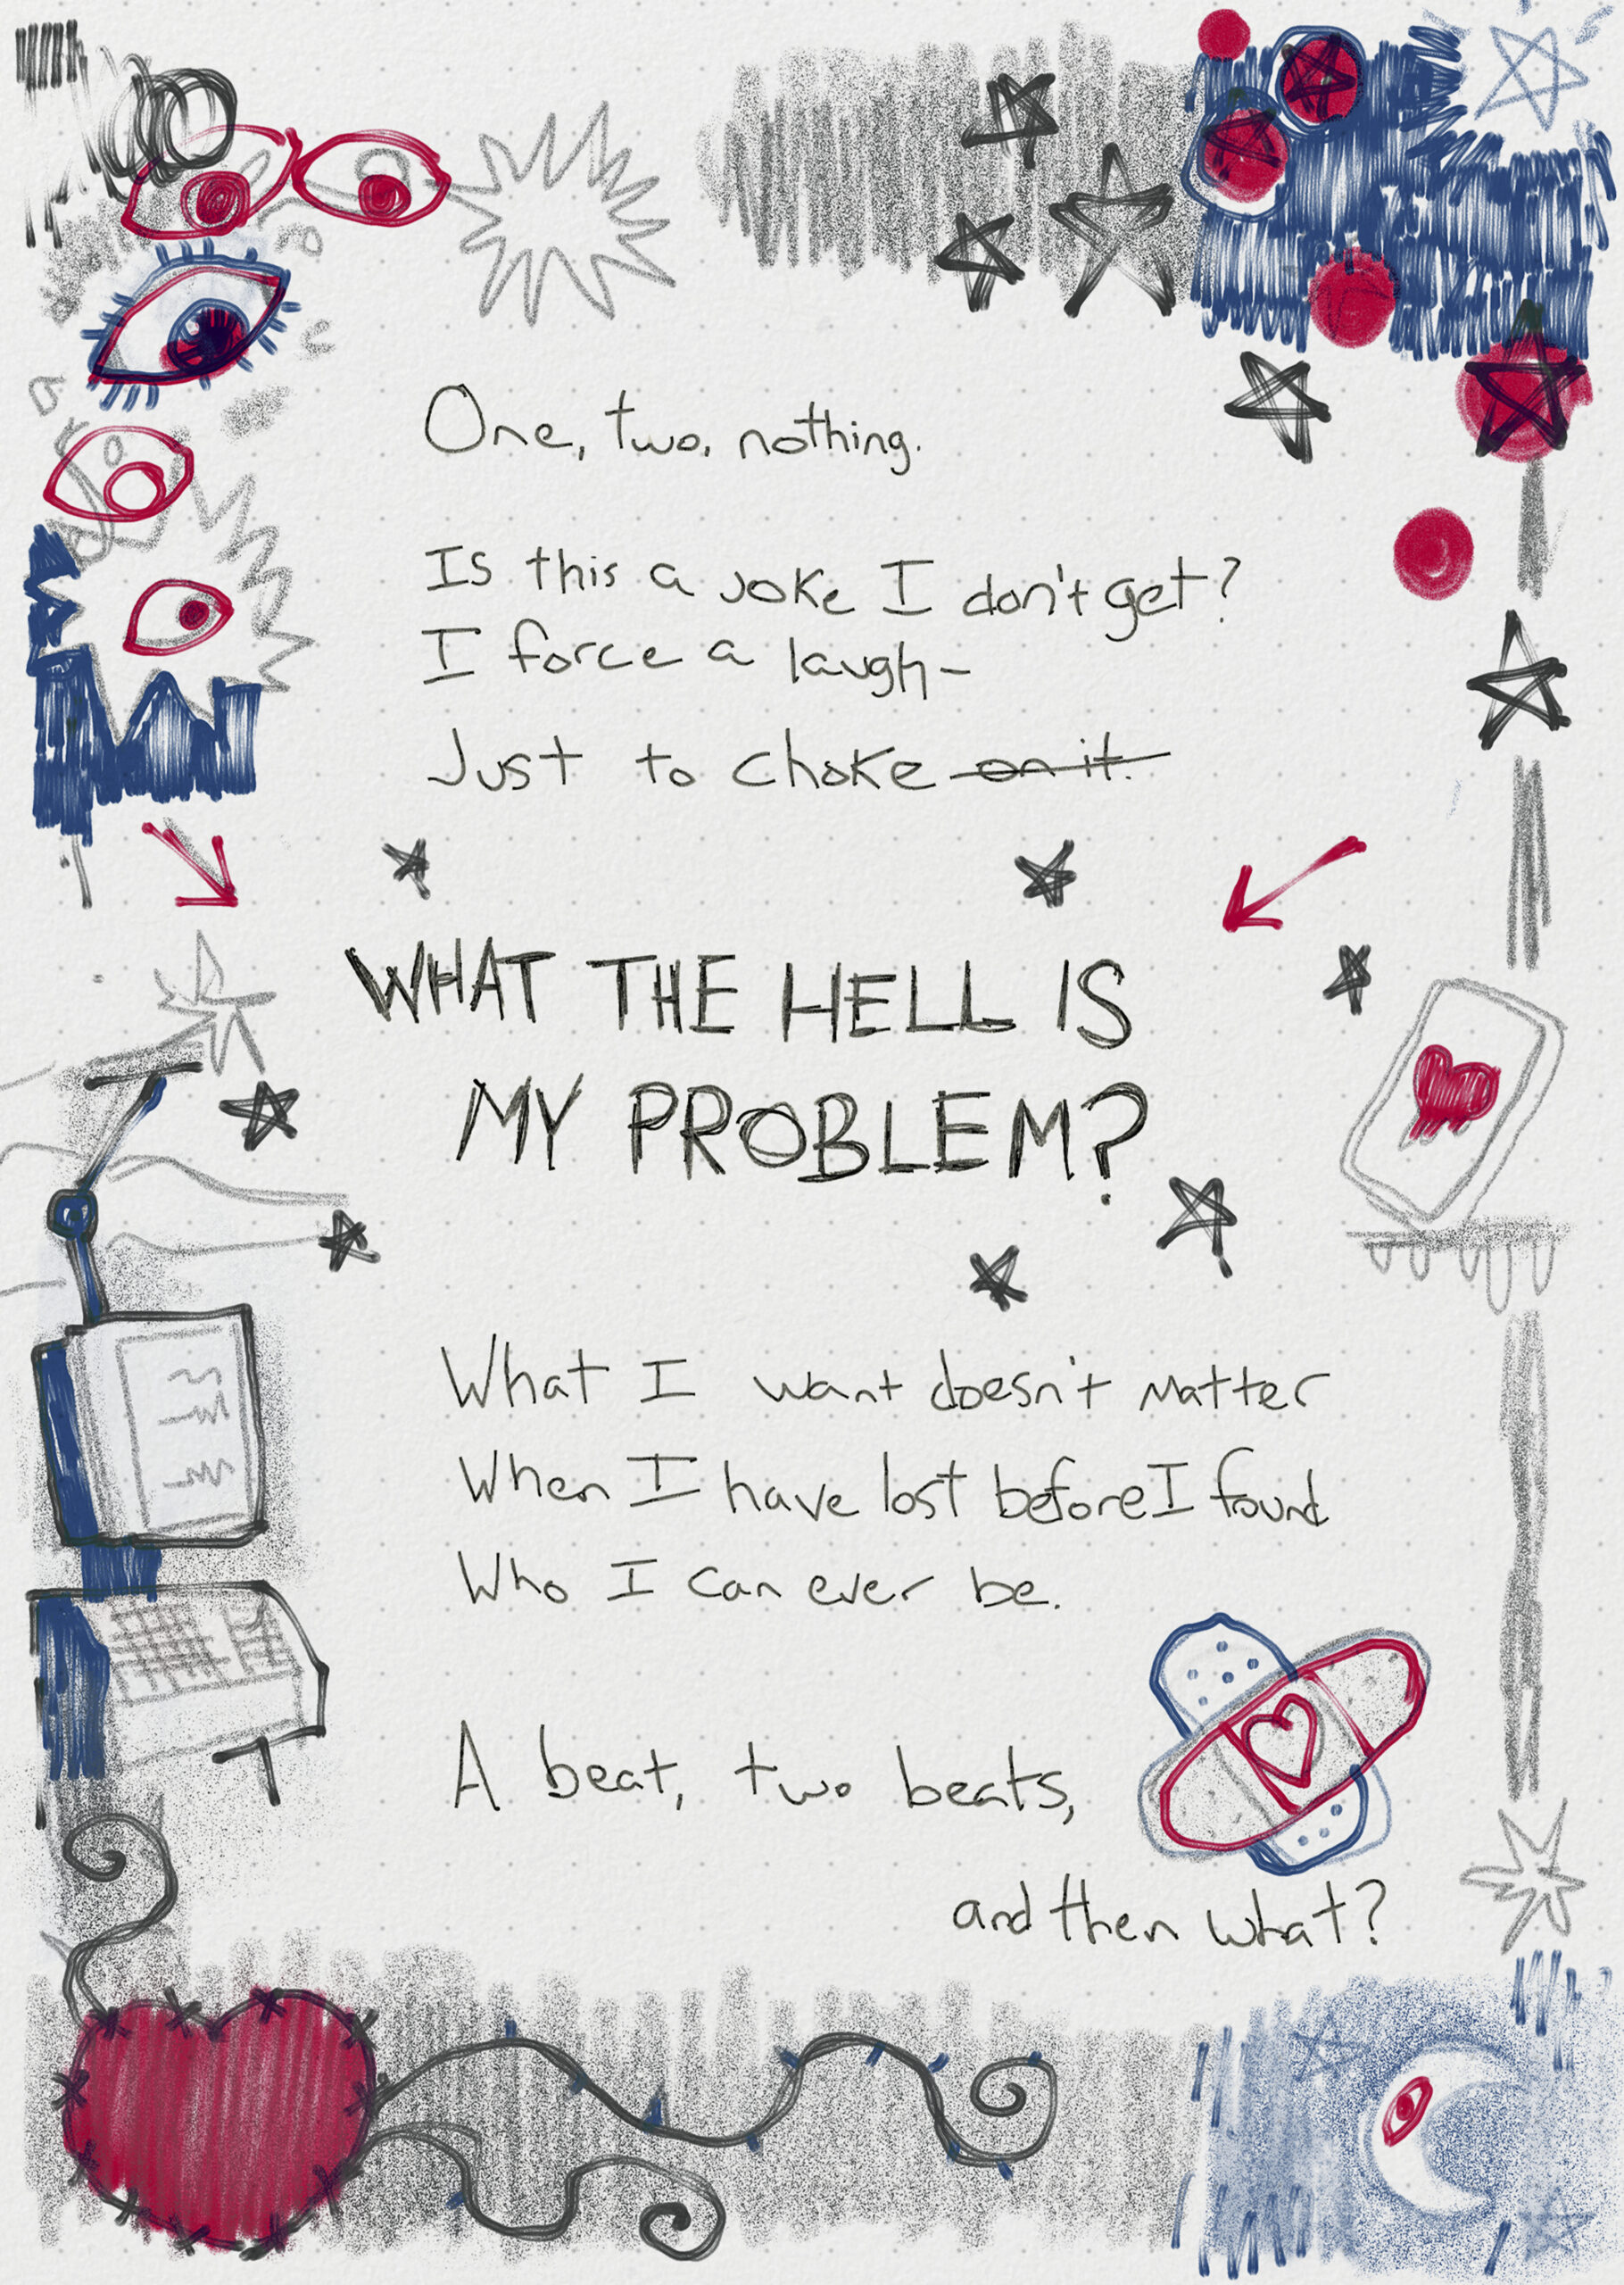 One, two, nothing.
Is this a joke I don't get?
I force a laugh-
Just to choke on it.
WHAT THE HELL IS
MY PROBLEM?
What I want doesn't matter
When I have lost before I found
Who I can ever be.
A beat, two beats,
and then what?